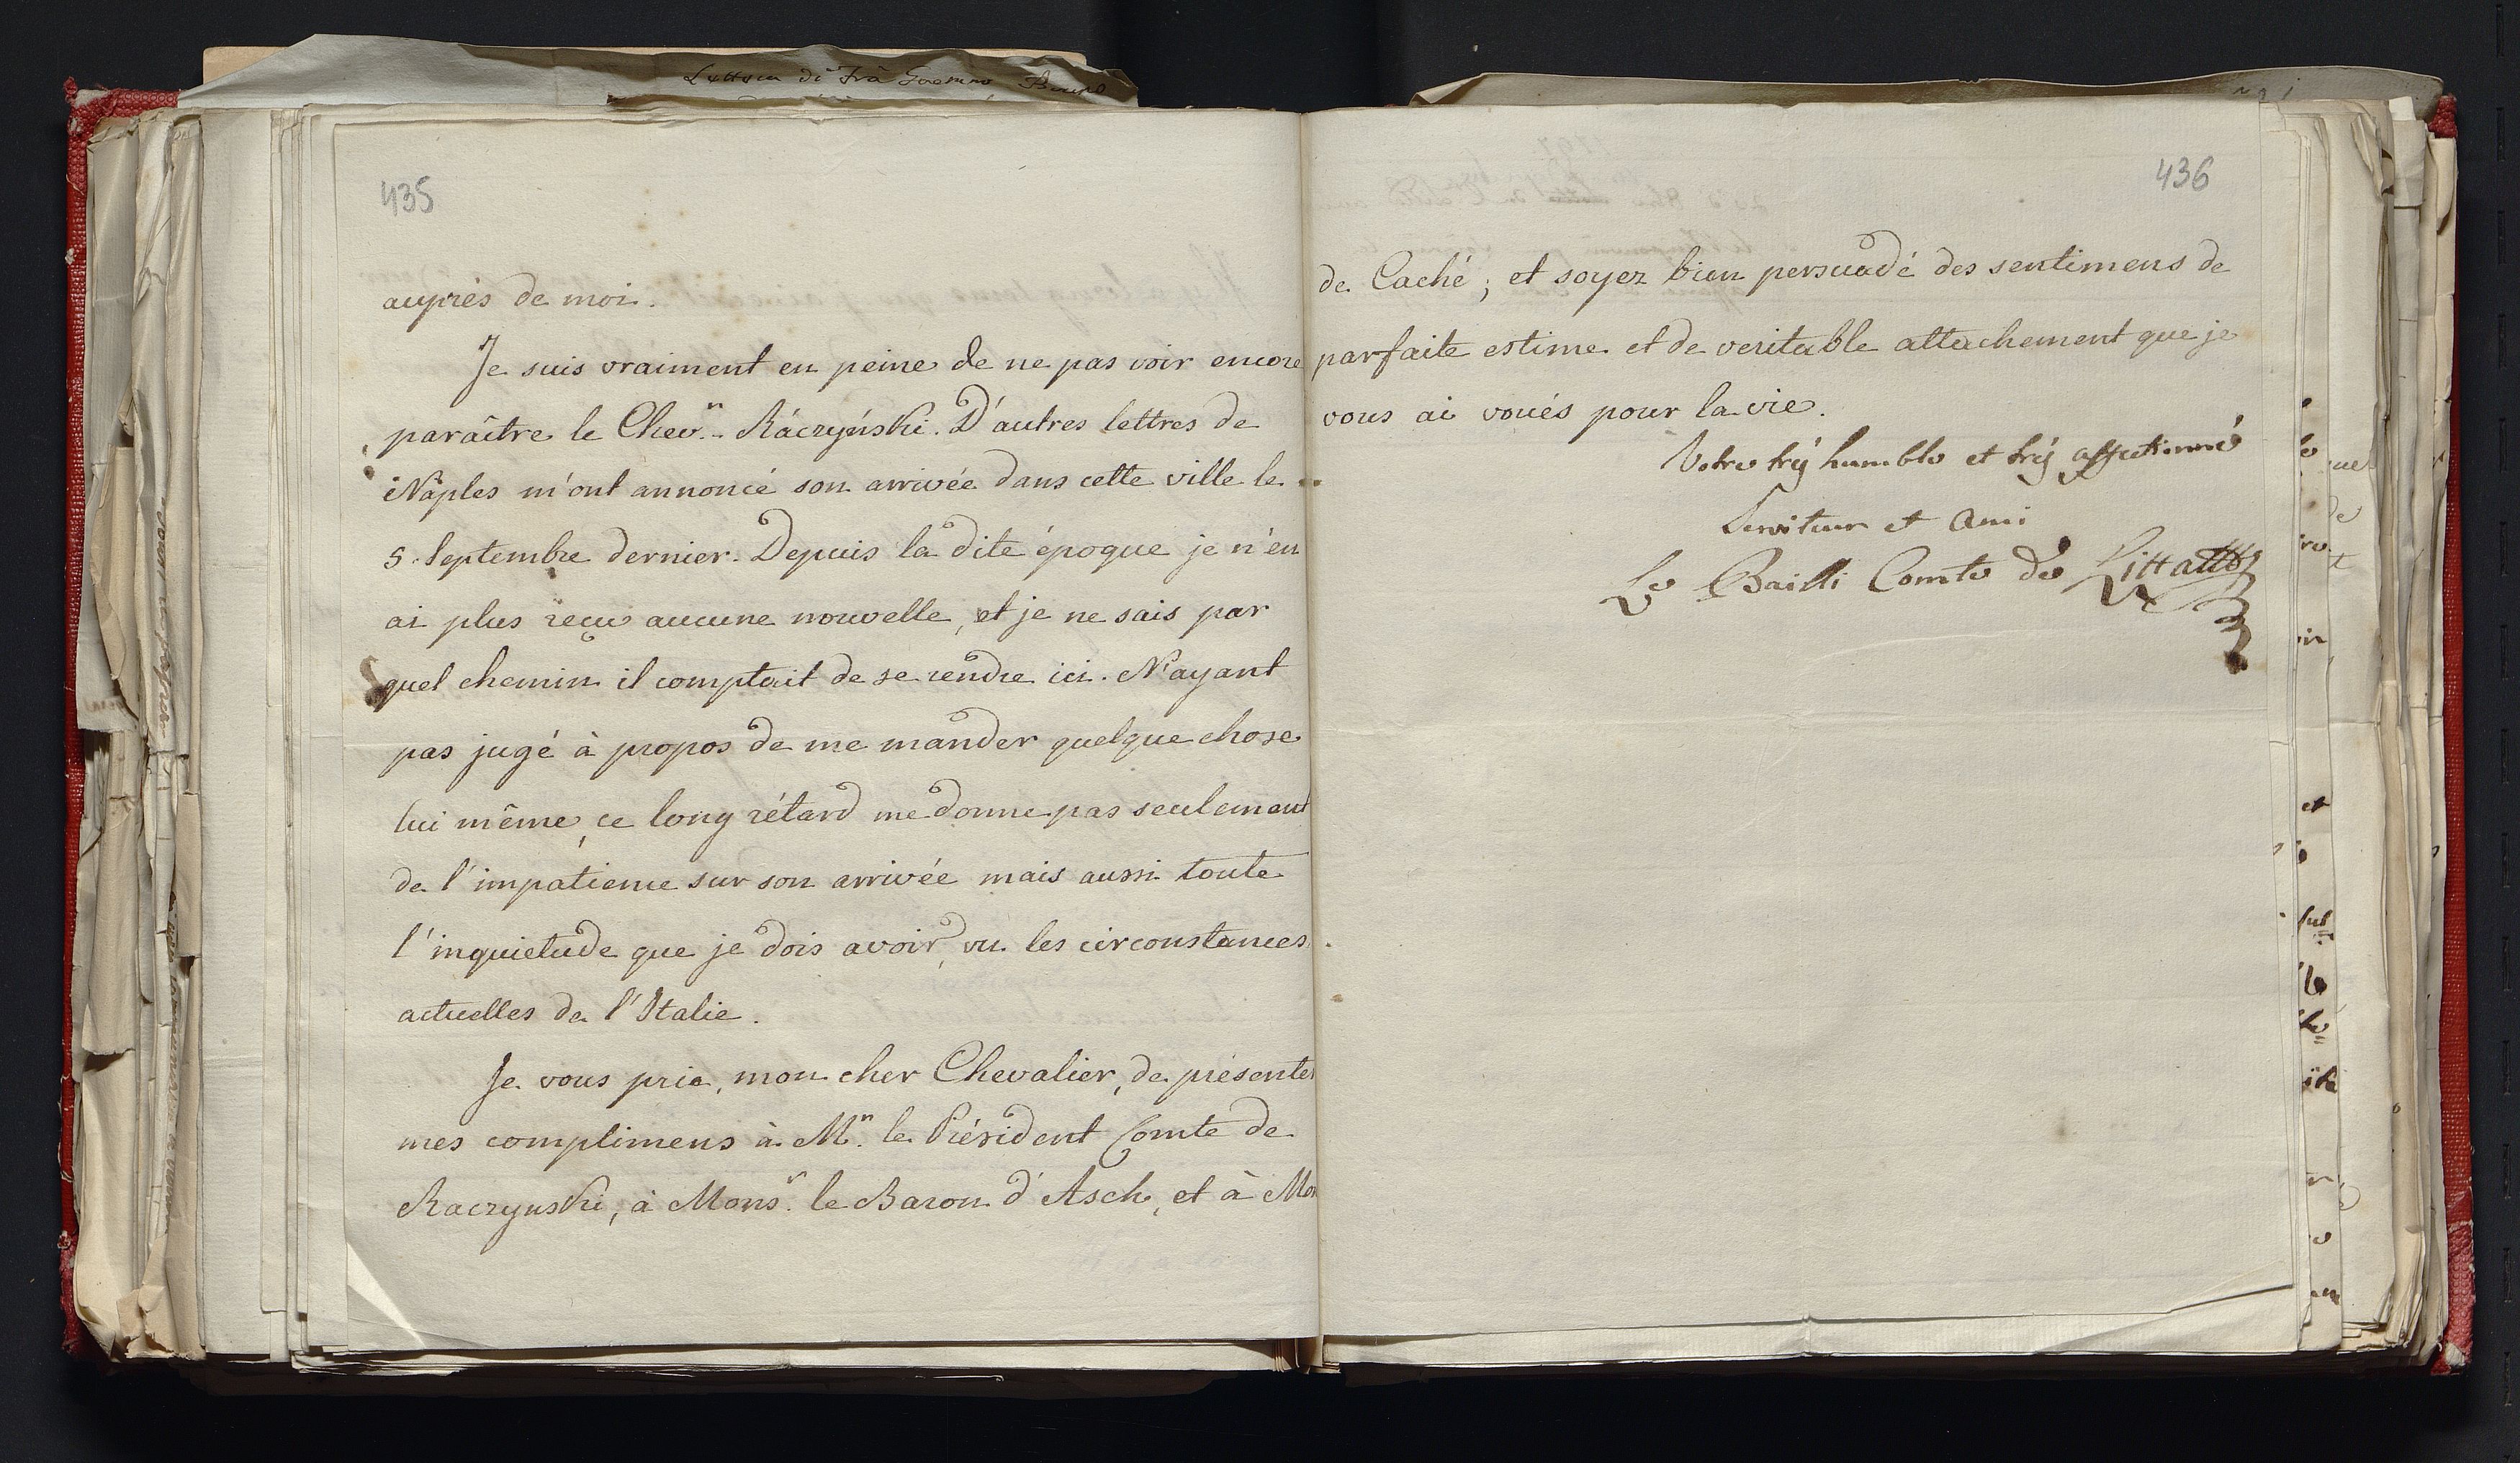 Lettera di Frà
435
auprès de moi.
Je suis vraiment en peine de ne pas voir encore
paraître le Chev.r Ráczyński. D'autres lettres de
Naples m'ont annoncé son arrivée dans cette ville le
5. Septembre dernier. Depuis la dite époque je n'en
ai plus reçu aucune nouvelle, et je ne sais par
quel chemin il comptait de se rendre ici. N'ayant
pas jugé à propos de me mander quelque chose
lui même, ce long rétard me donne pas seulement
de l'impatience sur son arrivée mais aussi toute
l'inquietude que je dois avoir, vu les circonstances
actuelles de l'Italie.
Je vous prie, mon cher Chevalier, de présenter
mes complimens à M.r le Président Comte de
Raczynski, à Mons.r le Baron d'Asch, et à Mon
436
de Caché; et soyez bien persuadé des sentimens de
parfaite estime et de veritable attachement que je
vous ai voués pour la vie.
Votre trés humble et trés affectionné
Serviteur et Ami
Le Bailli Comte de Litta